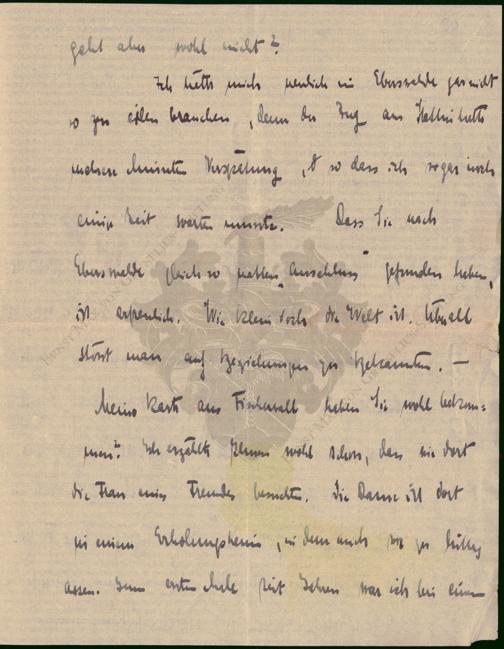 geht aber wohl nicht?
Ich hätte mich neulich in Eberswalde gar nicht
so zu eilen brauchen, denn der Zug aus Stettin hatte
mehrere Minuten Verspätung, so dass ich sogar noch
einige Zeit warten musste. Dass Sie nach
Eberswalde gleich so netten "Anschluss" gefunden haben,
ist erfreulich. Wie klein doch die Welt ist. Überall
stösst man auf Beziehungen zu Bekannten. —
Meine Karte aus haben Sie wohl bekom=
men? Ich erzählte Ihnen wohl schon, dass wir dort
die Frau eines Freundes besuchten. Die Dame ist dort
in einem Erholungsheim, in dem auch wir zu Mittag
assen. Zum ersten Male seit Jahren war ich bei einem